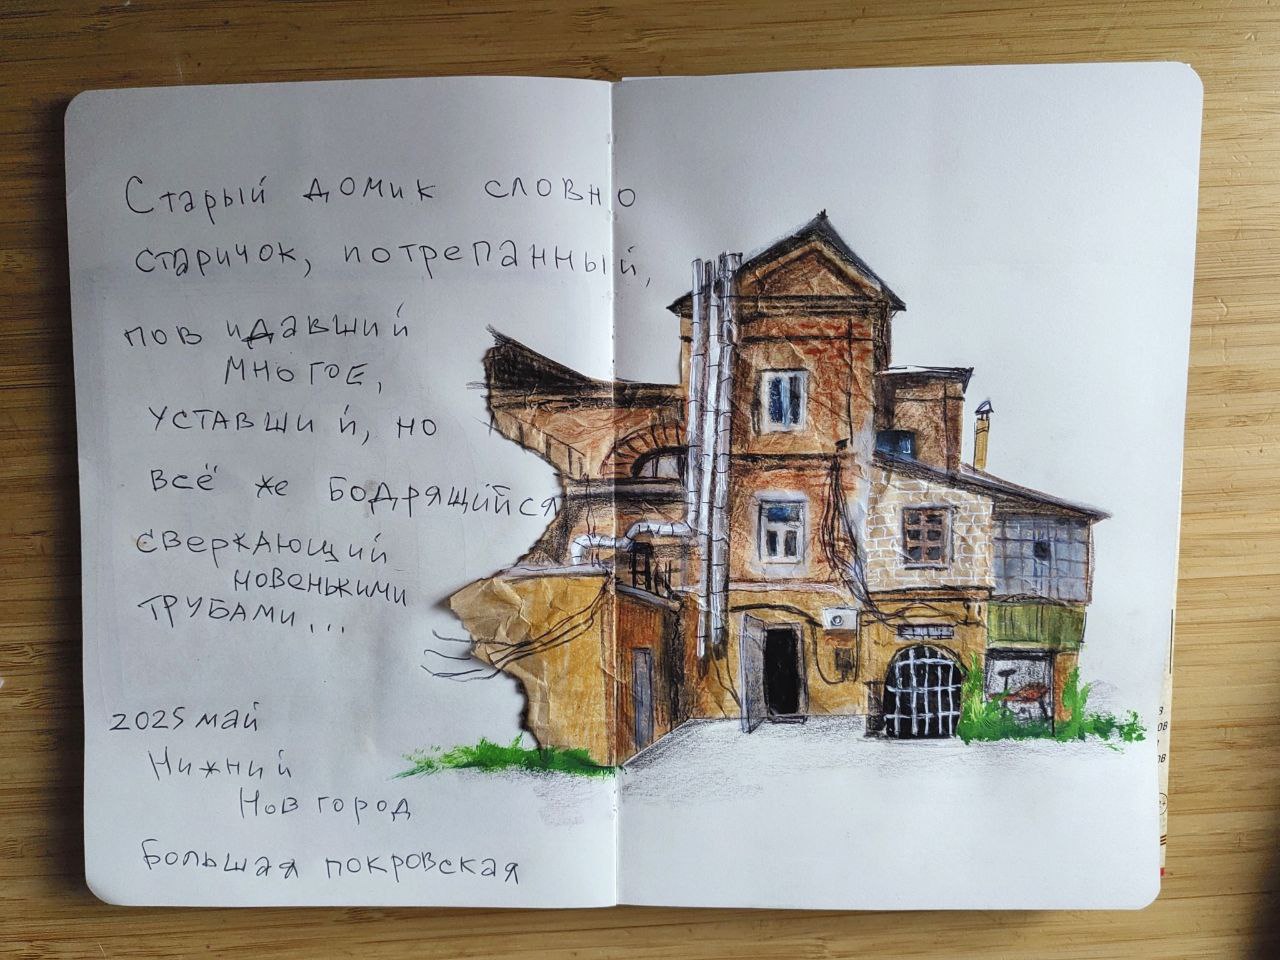 Старый домик словно
старичок, потрепанный,
повидавший
многое,
уставший, но
всё же бодрящийся
сверкающий
новенькими
трубами...
2025 май
Нижний
Новгород
Большая покровская